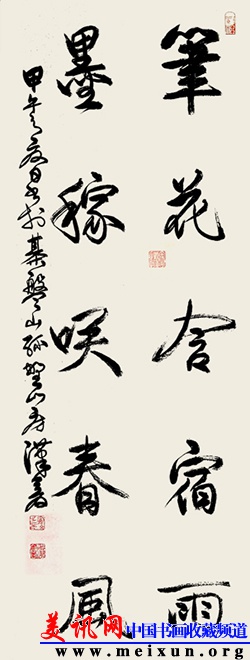 筆花含宿雨
墨稼咲春風
甲午夏日書於棊盤山
美讯网 中国书画收藏网
www.meixun.org